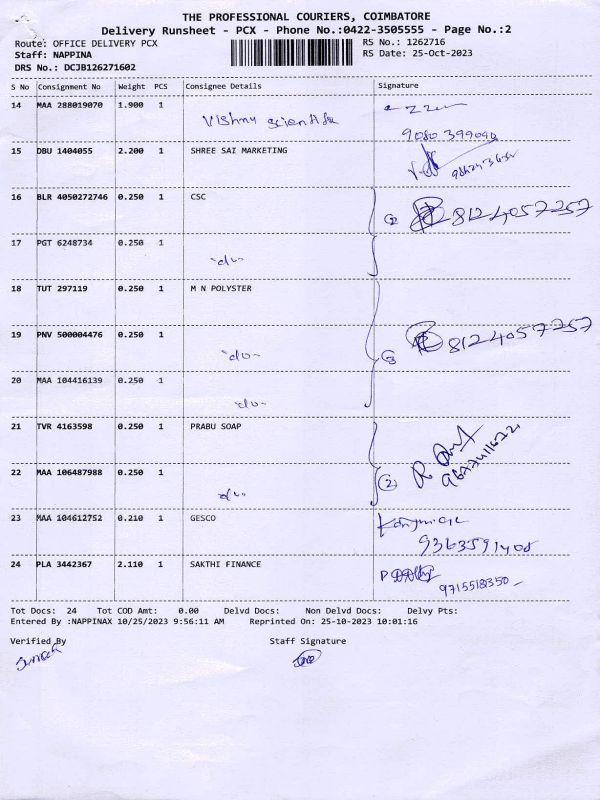 THE PROFESSIONAL COURIERS, COIMBATORE
Delivery Runsheet - PCX - Phone No.:0422-3505555 - Page No.:2
Route: OFFICE DELIVERY PCX RS No.: 1262716
Staff: NAPPINA RS Date: 25-Oct-2023
DRS No.: DCJB126271602
S No Consignment No Weight PCS Consignee Details Signature
14 MAA 288019070 1.900 1 Vishnu
15 DBU 1404055 2.200 1 SHREE SAI MARKETING
16 BLR 4050272746 0.250 1 CSC 2 8124057257
17 PGT 6248734 0.250 1 -do-
18 TUT 297119 0.250 1 M N POLYSTER
19 PNV 500004476 0.250 1 -do- 3 8124057257
20 MAA 104416139 0.250 1 -do-
21 TVR 4163598 0.250 1 PRABU SOAP
22 MAA 106487988 0.250 1 -do- 2
23 MAA 104612752 0.210 1 GESCO
24 PLA 3442367 2.110 1 SAKTHI FINANCE
9715518350
Tot Docs: 24 Tot COD Amt: 0.00 Delvd Docs: Non Delvd Docs: Delvy Pts:
Entered By :NAPPINAX 10/25/2023 9:56:11 AM Reprinted On: 25-10-2023 10:01:16
Verified By Staff Signature